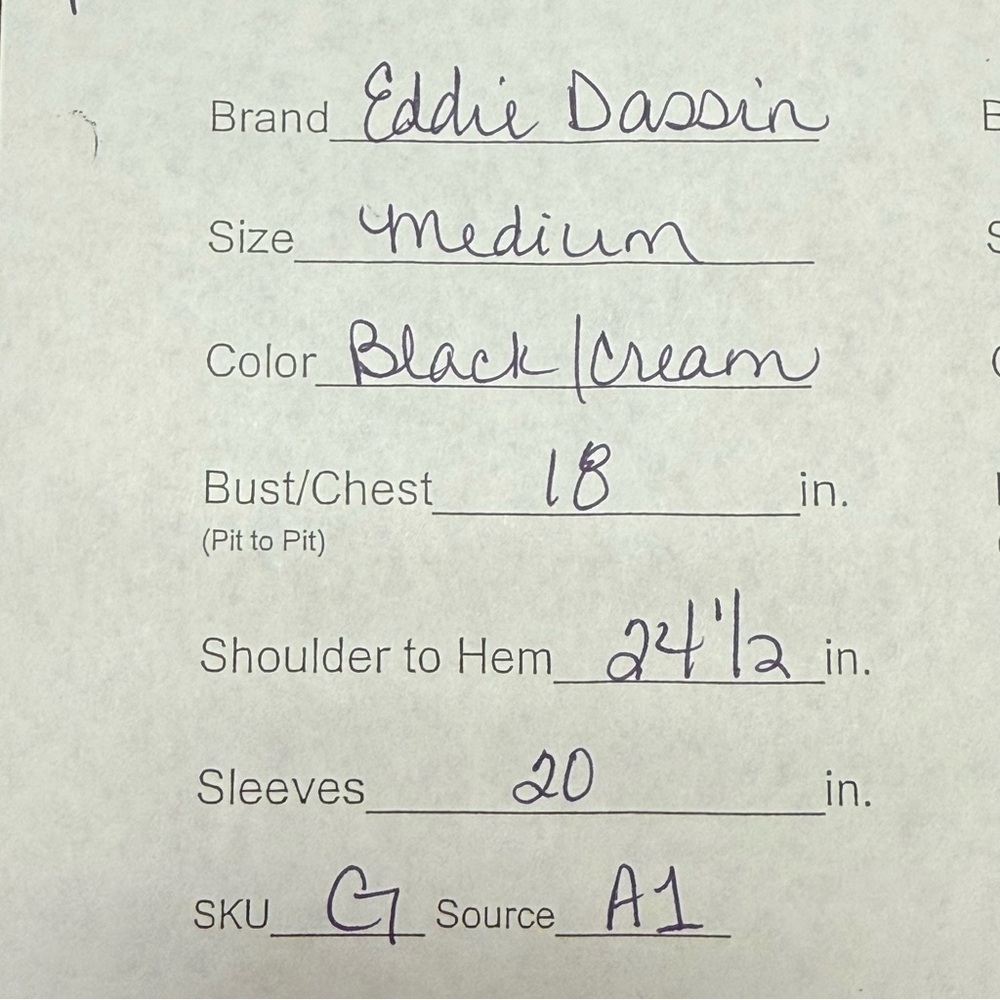 Brand Eddie Dassin
Size Medium
Color Black/Cream
Bust/Chest 18 in.
(Pit to Pit)
Shoulder to Hem 24 1/2 in.
Sleeves 20 in.
SKU G Source A1